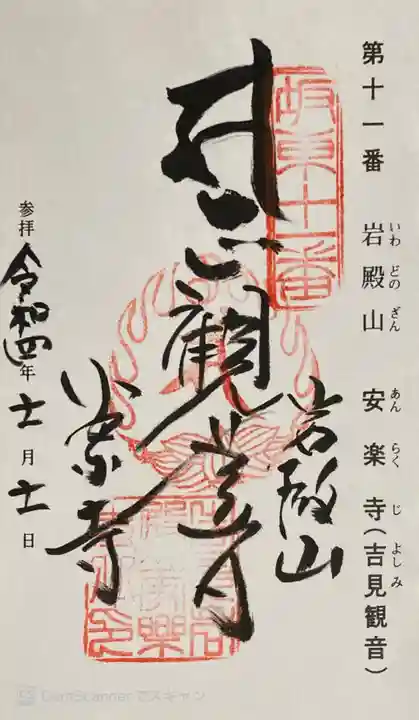 第十一番 岩殿山 安楽寺(吉見観音)
いわ どの ざん あん らく じ よしみ
坂東十一番
岩殿山
観世音
安楽寺
参拝 令和四年 十一月 十一日
CamScanner でスキャン